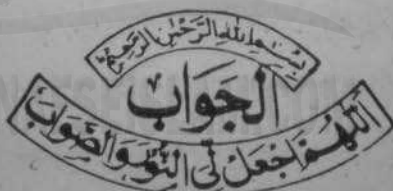 بِسْمِ اللهِ الرَّحْمٰنِ الرَّحِيْمِ
اَلْجَوَابُ
اَللّٰهُمَّ اجْعَلْ لِّى النُّوْرَ وَالصَّوَابَ